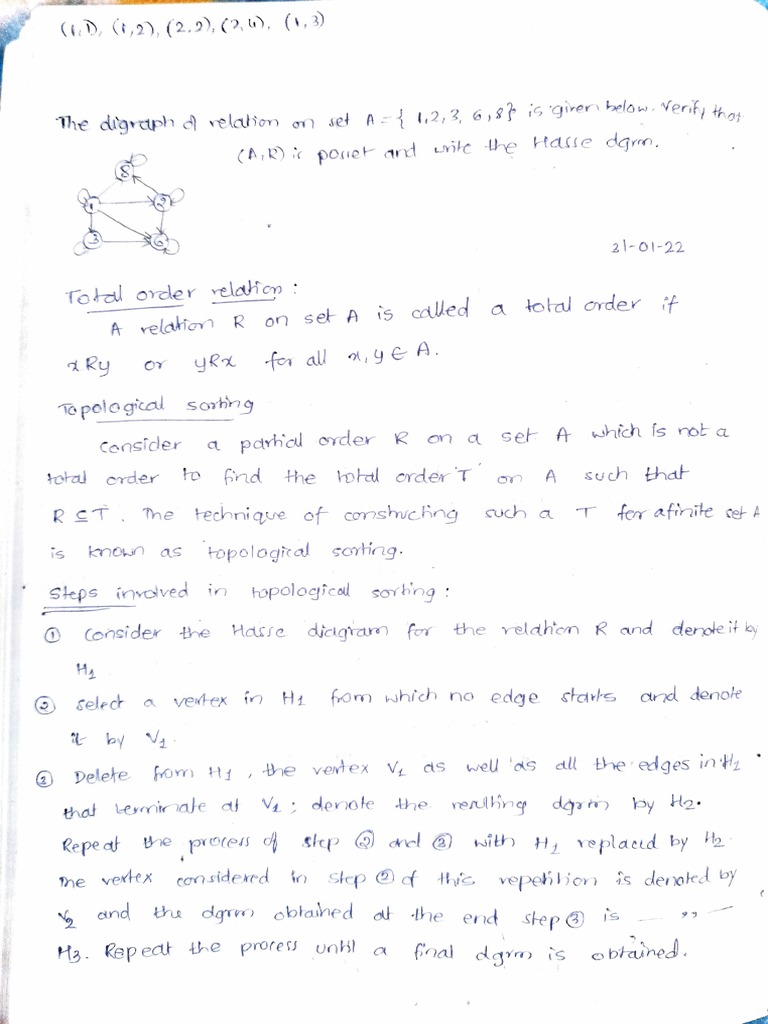 (1,1), (1,2), (2,2), (2,4), (1,3)
The digraph of relation on set A = { 1,2,3, 6,8} is given below. Verify that
(A,R) is posset and write the Hasse dgrm.
8
1 2
3 6
31-01-22
Total order relation :
A relation R on set A is called a total order if
xRy or yRx for all x,y ∈ A.
Topological sorting
Consider a partial order R on a set A which is not a
total order to find the total order 'T' on A such that
R ⊆ T. The technique of constructing such a T for a finite set A
is known as topological sorting.
Steps involved in topological sorting :
① Consider the Hasse diagram for the relation R and denote it by
H1
② Select a vertex in H1 from which no edge starts and denote
it by V1.
③ Delete from H1, the vertex V1 as well as all the edges in H1
that terminate at V1; denote the resulting dgrm by H2.
Repeat the process of step ② and ③ with H1 replaced by H2.
The vertex considered in step ② of this repetition is denoted by
V2 and the dgrm obtained at the end step ③ is — ,, —
H3. Repeat the process until a final dgrm is obtained.